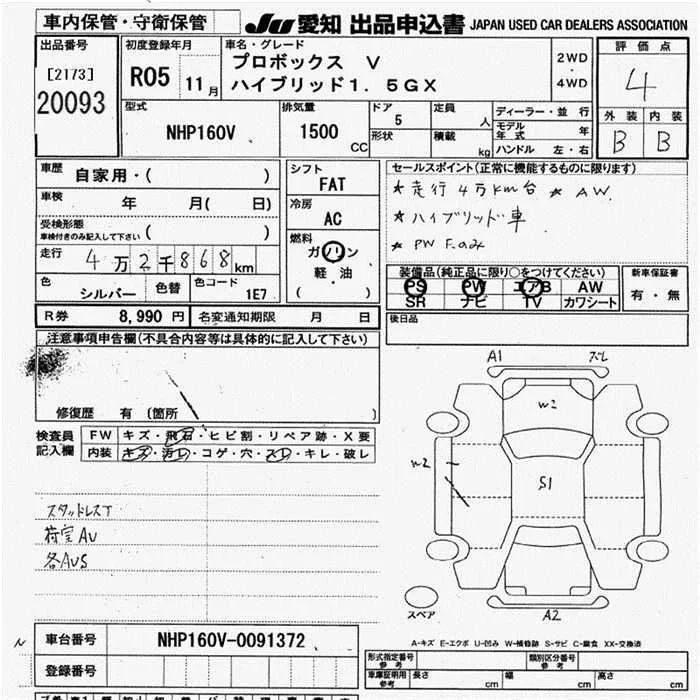 車内保管・守衛保管 JU 愛知 出品申込書 JAPAN USED CAR DEALERS ASSOCIATION
出品番号 初度登録年月 車名・グレード 評価点
[2173] R05 11月 プロボックス V 2WD
20093 ハイブリッド1.5GX ・4WD 4
型式 排気量 ドア 定員 ディーラー・並行 外装 内装
NHP160V 1500CC 5 人 モデル年式 年 B B
形状 積載 kg ハンドル 左・右
車歴 自家用・( ) シフト セールスポイント(正常に機能するものに限ります)
車検 年 月( 日) FAT ★走行4万km台 ★AW
受検形態 冷房 ★ハイブリッド車
車検付きのみ記入して下さい ( ) AC
走行 4万2千868km 燃料 ガソリン
軽・油
( )
装備品(純正品に限り○をつけてください) 新車保証書
PS PW エアB AW 有・無
SR ナビ TV カワシート
色 シルバー 色替 色コード 1E7
R券 8,990円 名変通知期限 月 日 後日品
注意事項申告欄(不具合内容等は具体的に記入して下さい)
修復歴 有 〔箇所 〕
検査員記入欄 FW キズ・飛石・ヒビ割・リペア跡・X要
内装 キズ・汚レ・コゲ・穴・スレ・キレ・破レ
A1 スレ
W2
W2
S1
スタッドレスT
荷室AU
各AUS
スペア A2
A-キズ E-エクボ U-凹み W-補修跡 S-サビ C-腐食 XX-交換済
車台番号 NHP160V-0091372
登録番号
形式指定番号 参考 類別区分番号 参考
車庫証明用 参考 長さ cm 幅 cm 高さ cm